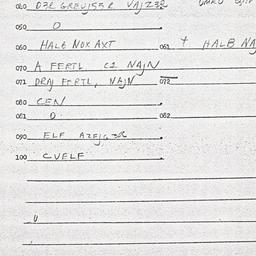 020 D3L GREUISSE VAJZ3R
050 O
060 HALB NOX AXT 061 + HALB NA
070 A FERTL CI NAJN
071 DRAJ FERTL, NAJN 072
080 CEN
081 O 082
090 ELF
100 CVELF